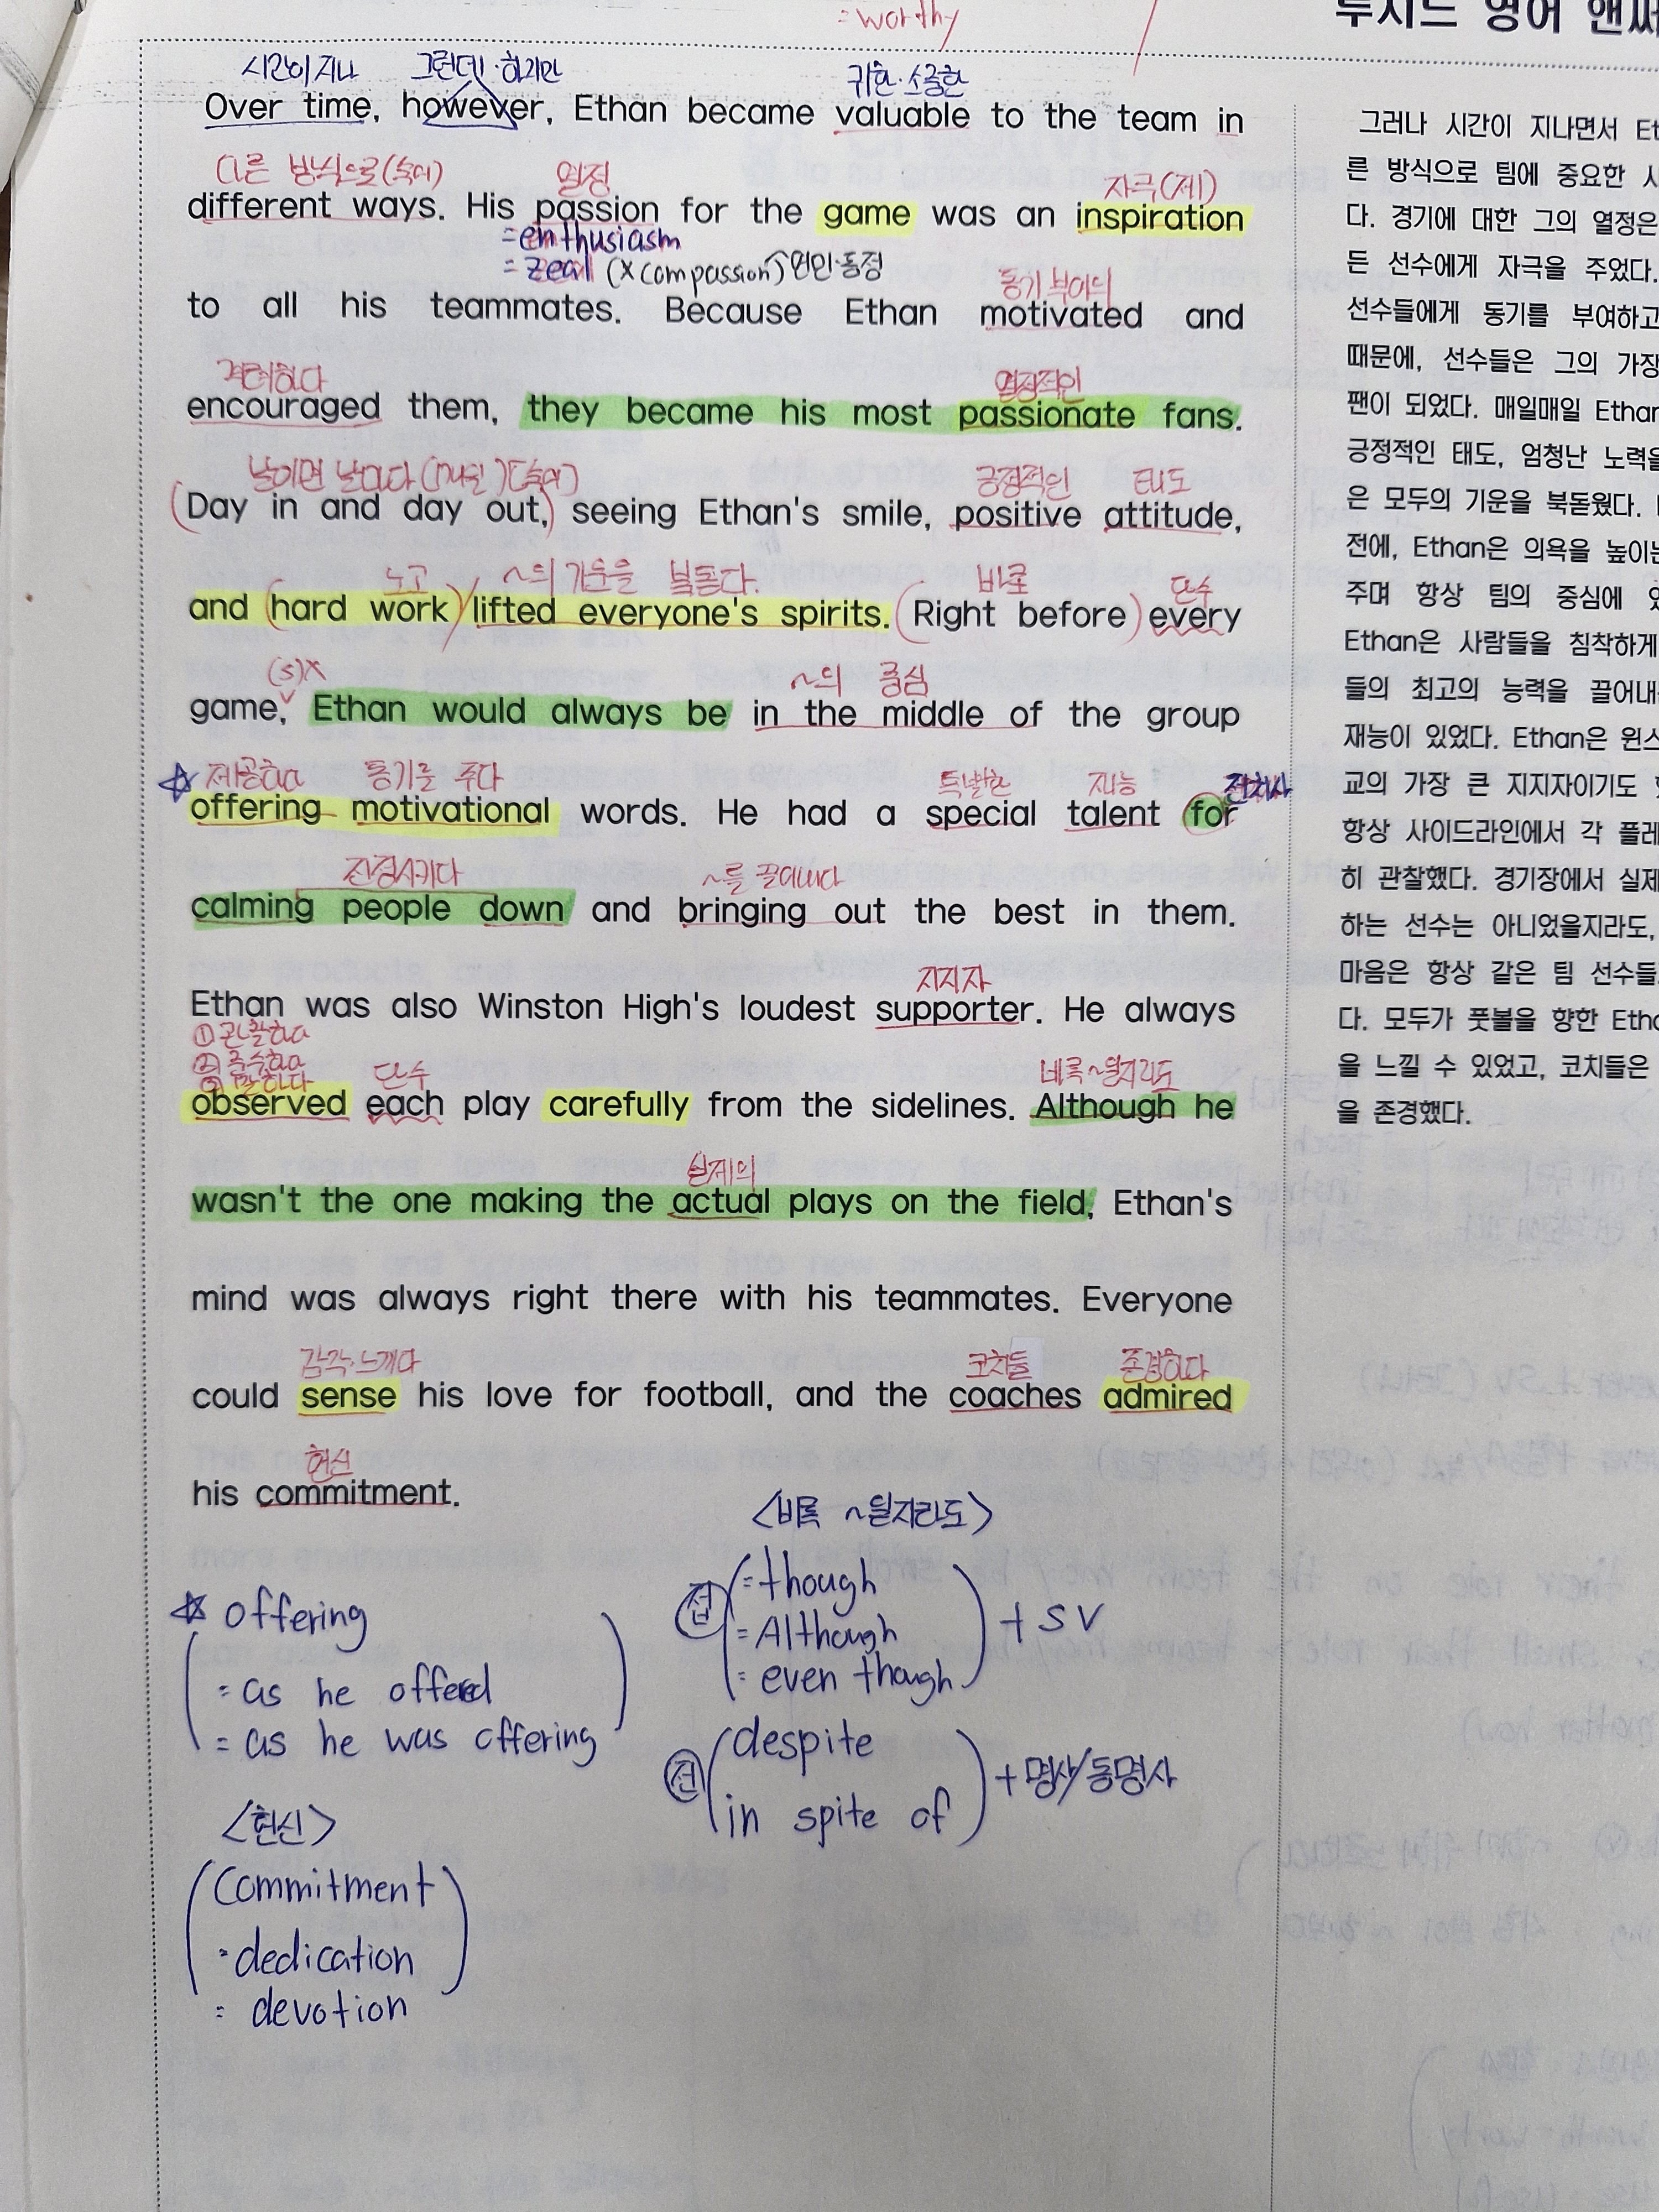 = worthy
루시드 영어 앤써
시간이 지나 그런데·하지만 귀한·소중한
Over time, however, Ethan became valuable to the team in
다른 방식으로(숙어) 열정 자극(제)
different ways. His passion for the game was an inspiration
= enthusiasm
= zeal (X compassion) 연민·동정
동기 부여의
to all his teammates. Because Ethan motivated and
격려하다 열정적인
encouraged them, they became his most passionate fans.
날이면 날마다 (매일) (숙어) 긍정적인 태도
(Day in and day out,) seeing Ethan's smile, positive attitude,
노고 ~의 기운을 북돋다. 바로 단수
and (hard work) lifted everyone's spirits. (Right before) every
(s)X ~의 중심
game, Ethan would always be in the middle of the group
☆ 제공하다 동기를 주다 특별한 재능 전치사
offering motivational words. He had a special talent for
진정시키다 ~를 끌어내다
calming people down and bringing out the best in them.
지지자
Ethan was also Winston High's loudest supporter. He always
① 관찰하다
② 준수하다
③ 말하다 단수 비록~일지라도
observed each play carefully from the sidelines. Although he
실제의
wasn't the one making the actual plays on the field, Ethan's
mind was always right there with his teammates. Everyone
감각·느끼다 코치들 존경하다
could sense his love for football, and the coaches admired
헌신
his commitment.
☆ offering
= as he offered
= as he was offering
<헌신>
commitment
= dedication
= devotion
<비록 ~일지라도>
접 = though
= Although
= even though
+ S V
전 despite
in spite of
+ 명사/동명사
그러나 시간이 지나면서 Et
른 방식으로 팀에 중요한 사
다. 경기에 대한 그의 열정은
든 선수에게 자극을 주었다.
선수들에게 동기를 부여하고
때문에, 선수들은 그의 가장
팬이 되었다. 매일매일 Ethan
긍정적인 태도, 엄청난 노력을
은 모두의 기운을 북돋웠다.
전에, Ethan은 의욕을 높이는
주며 항상 팀의 중심에 있
Ethan은 사람들을 침착하게
들의 최고의 능력을 끌어내
재능이 있었다. Ethan은 윈스
교의 가장 큰 지지자이기도
항상 사이드라인에서 각 플레
히 관찰했다. 경기장에서 실제
하는 선수는 아니었을지라도,
마음은 항상 같은 팀 선수들
다. 모두가 풋볼을 향한 Etha
을 느낄 수 있었고, 코치들은
을 존경했다.